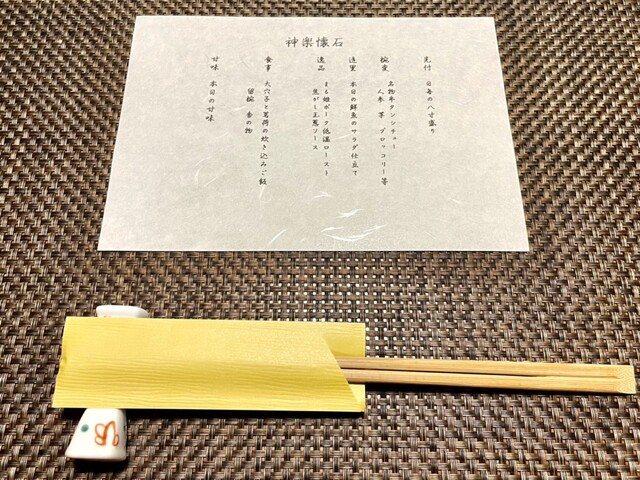 神楽懐石
先付 日毎の八寸盛り
椀変 名物牛タンシチュー
人参 芋 ブロッコリー等
造里 本日の鮮魚のサラダ仕立て
逸品 まる姫ポーク低温ロースト
焦がし玉葱ソース
食事 大穴子と茗荷の炊き込みご飯
留椀 香の物
甘味 本日の甘味